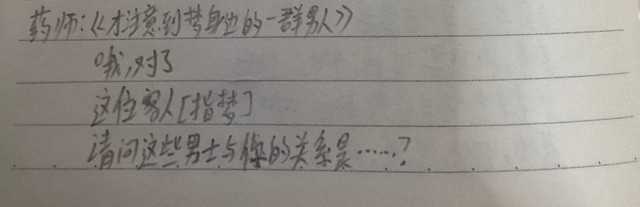 药师:《才注意到梦身边的一群男人》
哦,对了
这位客人[指梦]
请问这些男士与你的关系是……?